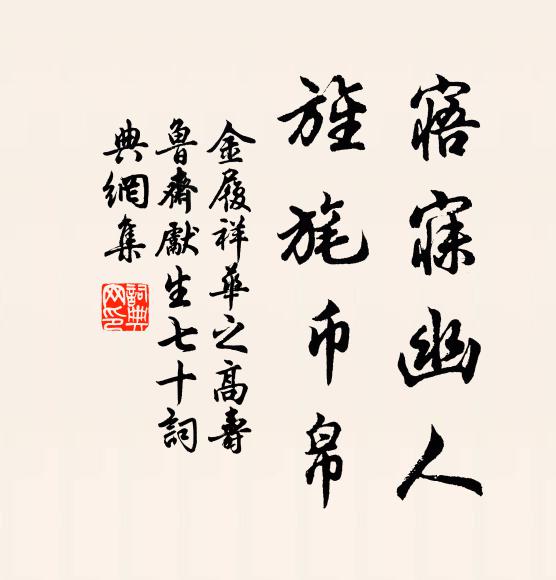 寤寐幽人
旌旄币帛
金履祥華之高壽
魯齋獻生七十詞
典網集
詞典網印